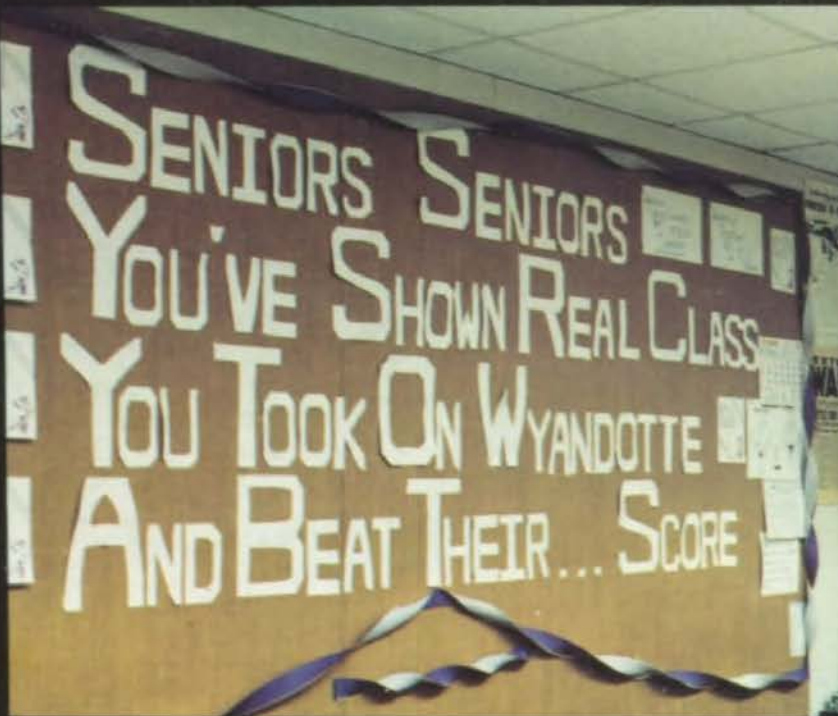 SENIORS SENIORS
YOU'VE SHOWN REAL CLASS
YOU TOOK ON WYANDOTTE
AND BEAT THEIR... SCORE